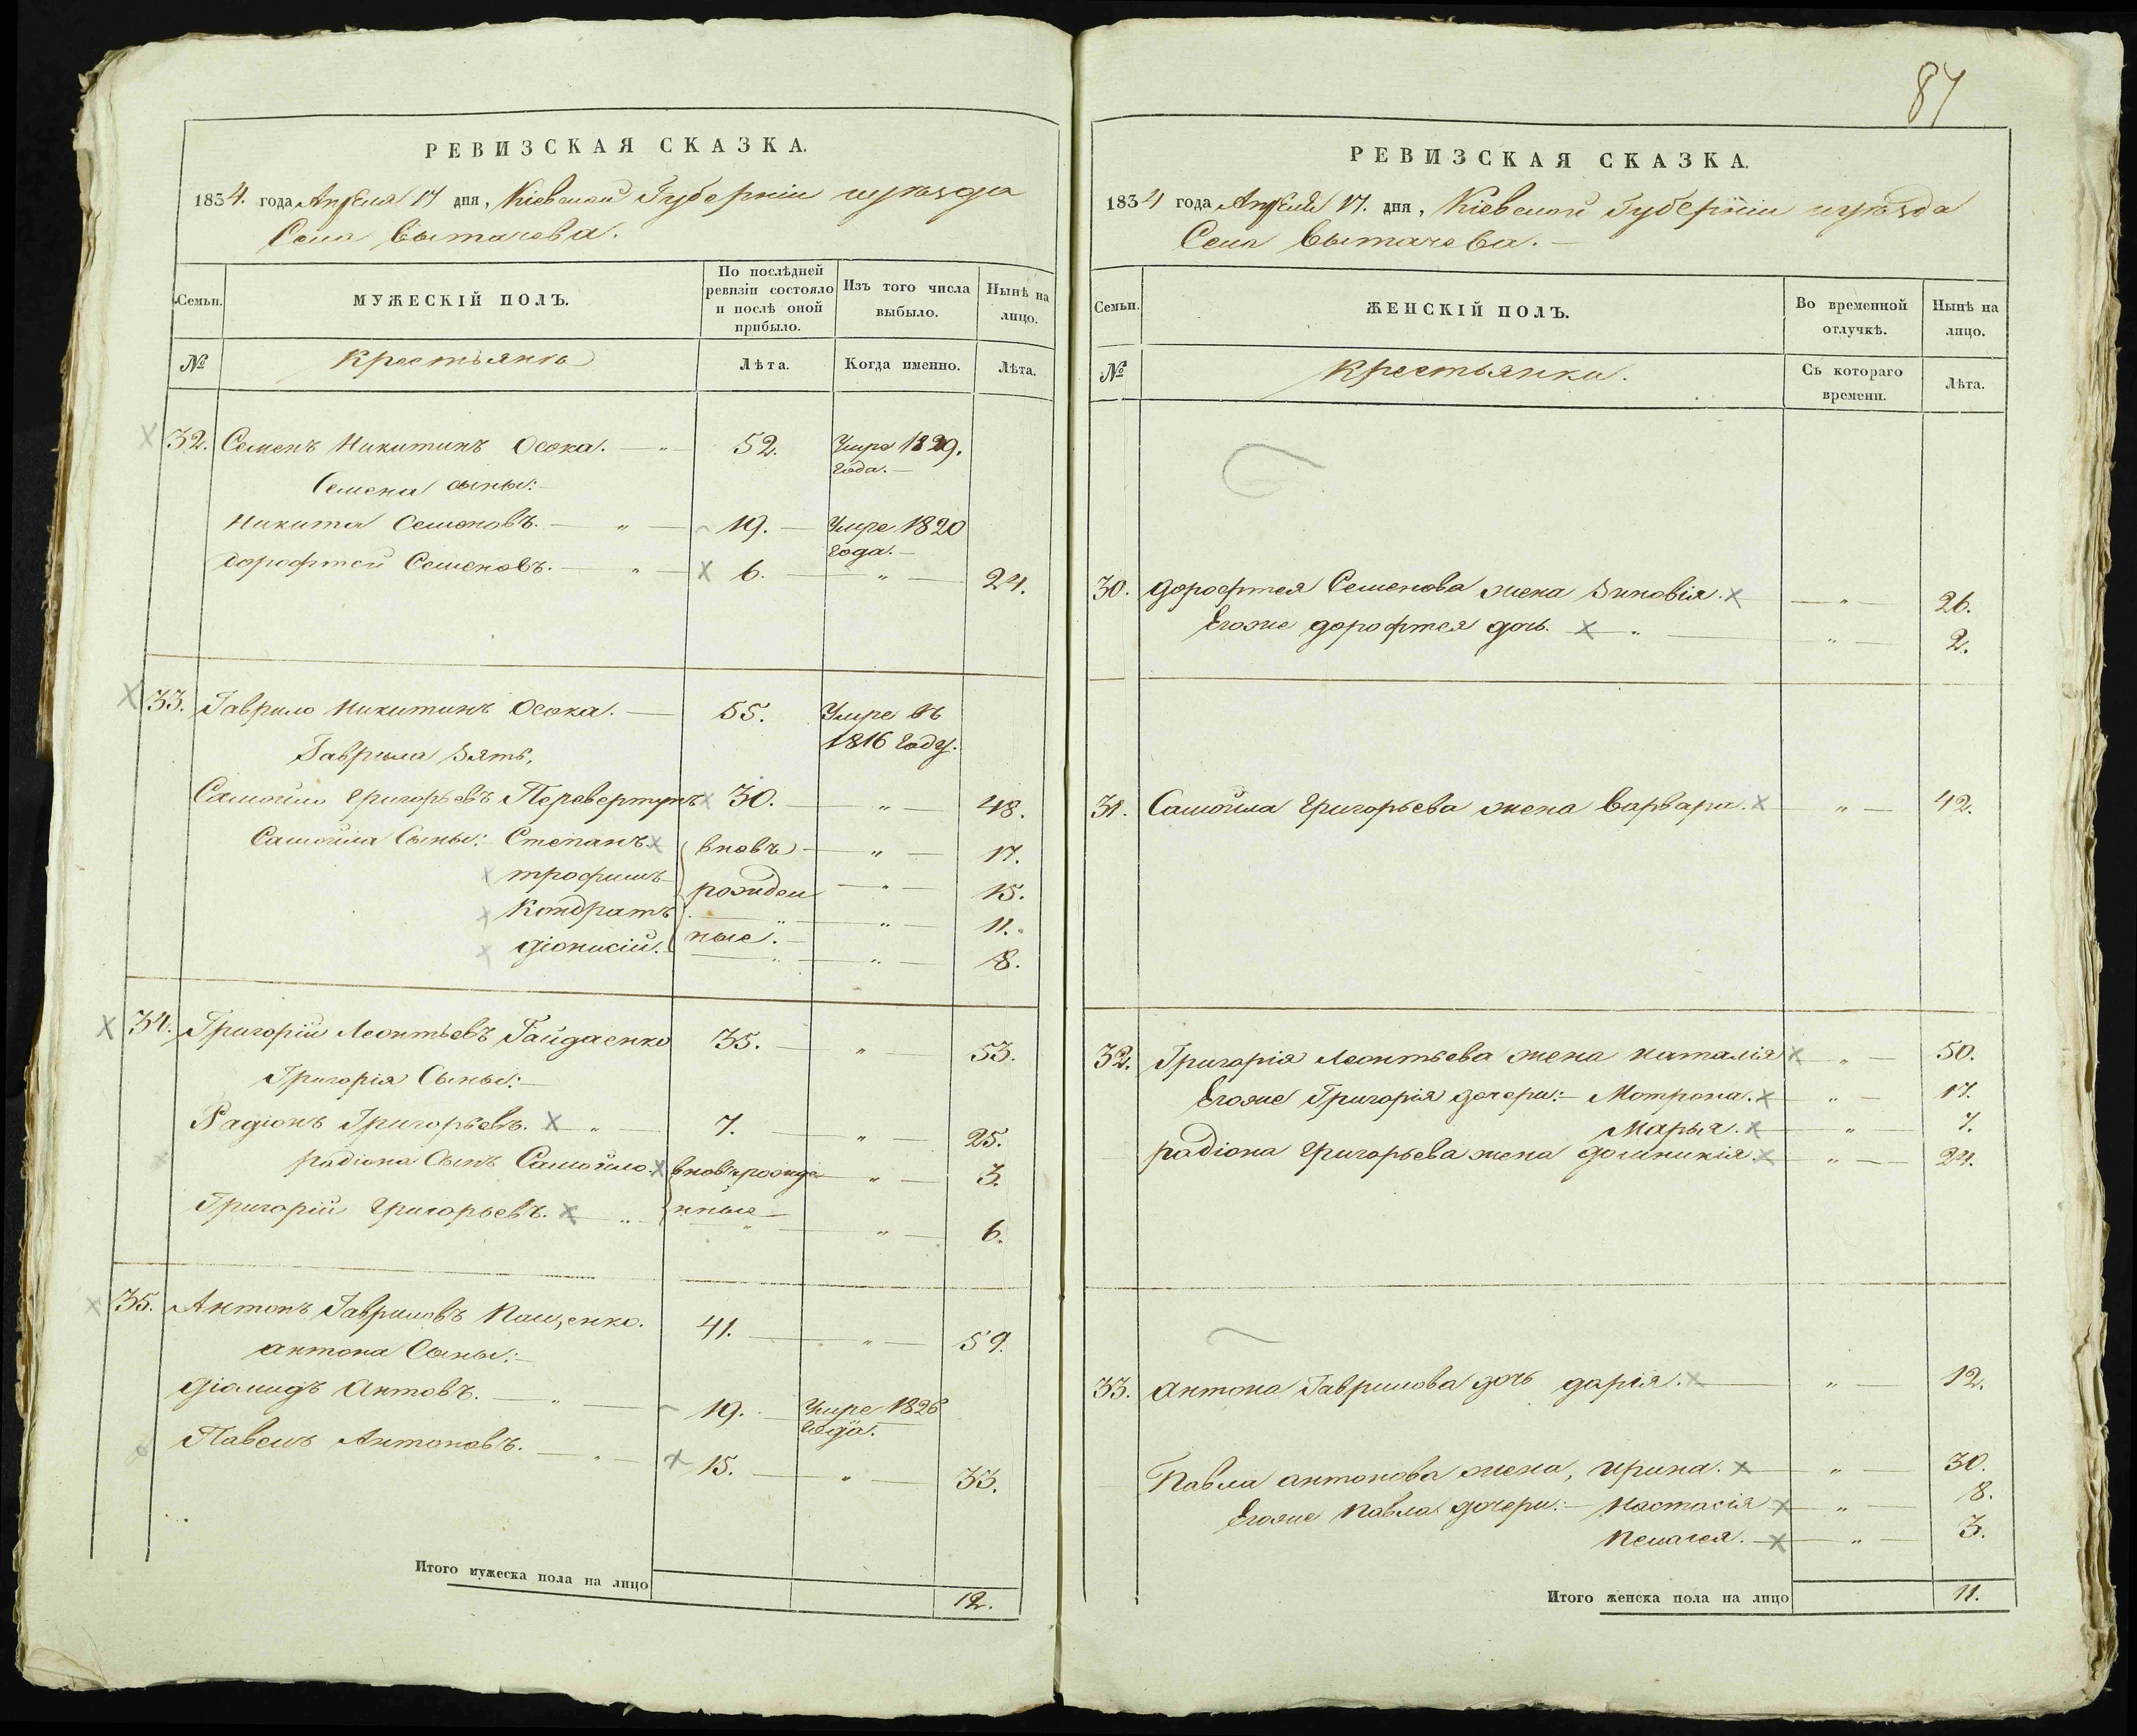 РЕВИЗСКАЯ СКАЗКА.
1834. года Апреля 17 дня, Кіевской Губерніи и уѣзда
Села Вытачева.
Семьи.
МУЖЕСКІЙ ПОЛЪ.
По послѣдней ревизіи состояло и послѣ оной прибыло.
Изъ того числа выбыло.
Нынѣ на лицо.
№
Крестьянъ
Лѣта.
Когда именно.
Лѣта.
32. Семенъ Никитинъ Осока. — „ — 52. Умре 1829.
года. —
Семена сыны:
Никита Семеновъ. — „ — 19. — Умре 1820
года. —
Дорофтей Семеновъ. — „ — 6. — „ — 24.
33. Гаврило Никитинъ Осока. — 55. Умре въ
1816 году.
Гаврила зять,
Самойло Григорьевъ Перевертунъ 30. — „ — 48.
Самойла Сыны: Степанъ. вновь — „ — 17.
трофимъ рожден — „ — 15.
Кондратъ „ — „ — 11.
Діонисій. ные. — „ — 8.
34. Григорій Леонтьевъ Гайдаенко 35. — „ — 53.
Григорія Сыны:
Радіонъ Григорьевъ. „ — 7. — „ — 25.
радіона Сынъ Самойло. вновь рожде „ — 3.
Григорій Григорьевъ. „ нные — „ — 6.
35. Антонъ Гавриловъ Пащенко. 41. — „ — 59.
антона Сыны:
Діамидъ Антовъ. — „ — 19. — Умре 1826
года.
Павелъ Антоновъ. — „ — 15. — „ — 33.
Итого мужеска пола на лицо 12.
87
РЕВИЗСКАЯ СКАЗКА.
1834 года Апреля 17. дня, Кіевской Губерніи и уѣзда
Села Вытачева. —
Семьи.
ЖЕНСКІЙ ПОЛЪ.
Во временной отлучкѣ.
Нынѣ на лицо.
№
Крестьянки.
Съ котораго времени.
Лѣта.
30. Дорофтея Семенова жена Зиновія. — „ — 26.
Егоже дорофтея дочь. „ — „ — 2.
31. Самойла Григорьева жена Варвара. „ — 42.
32. Григорія Леонтьева жена наталія „ — 50.
Егоже Григорія дочери: — Мотрона. „ — 17.
Марья. „ — 7.
радіона Григорьева жена Домникія. „ — 24.
33. антона Гаврилова дочь дарія. — „ — 12.
Павла антонова жена, ирина. — „ — 30.
Егоже Павла дочери: — Настасія „ — 8.
Пелагея. — „ — 3.
Итого женска пола на лицо 11.